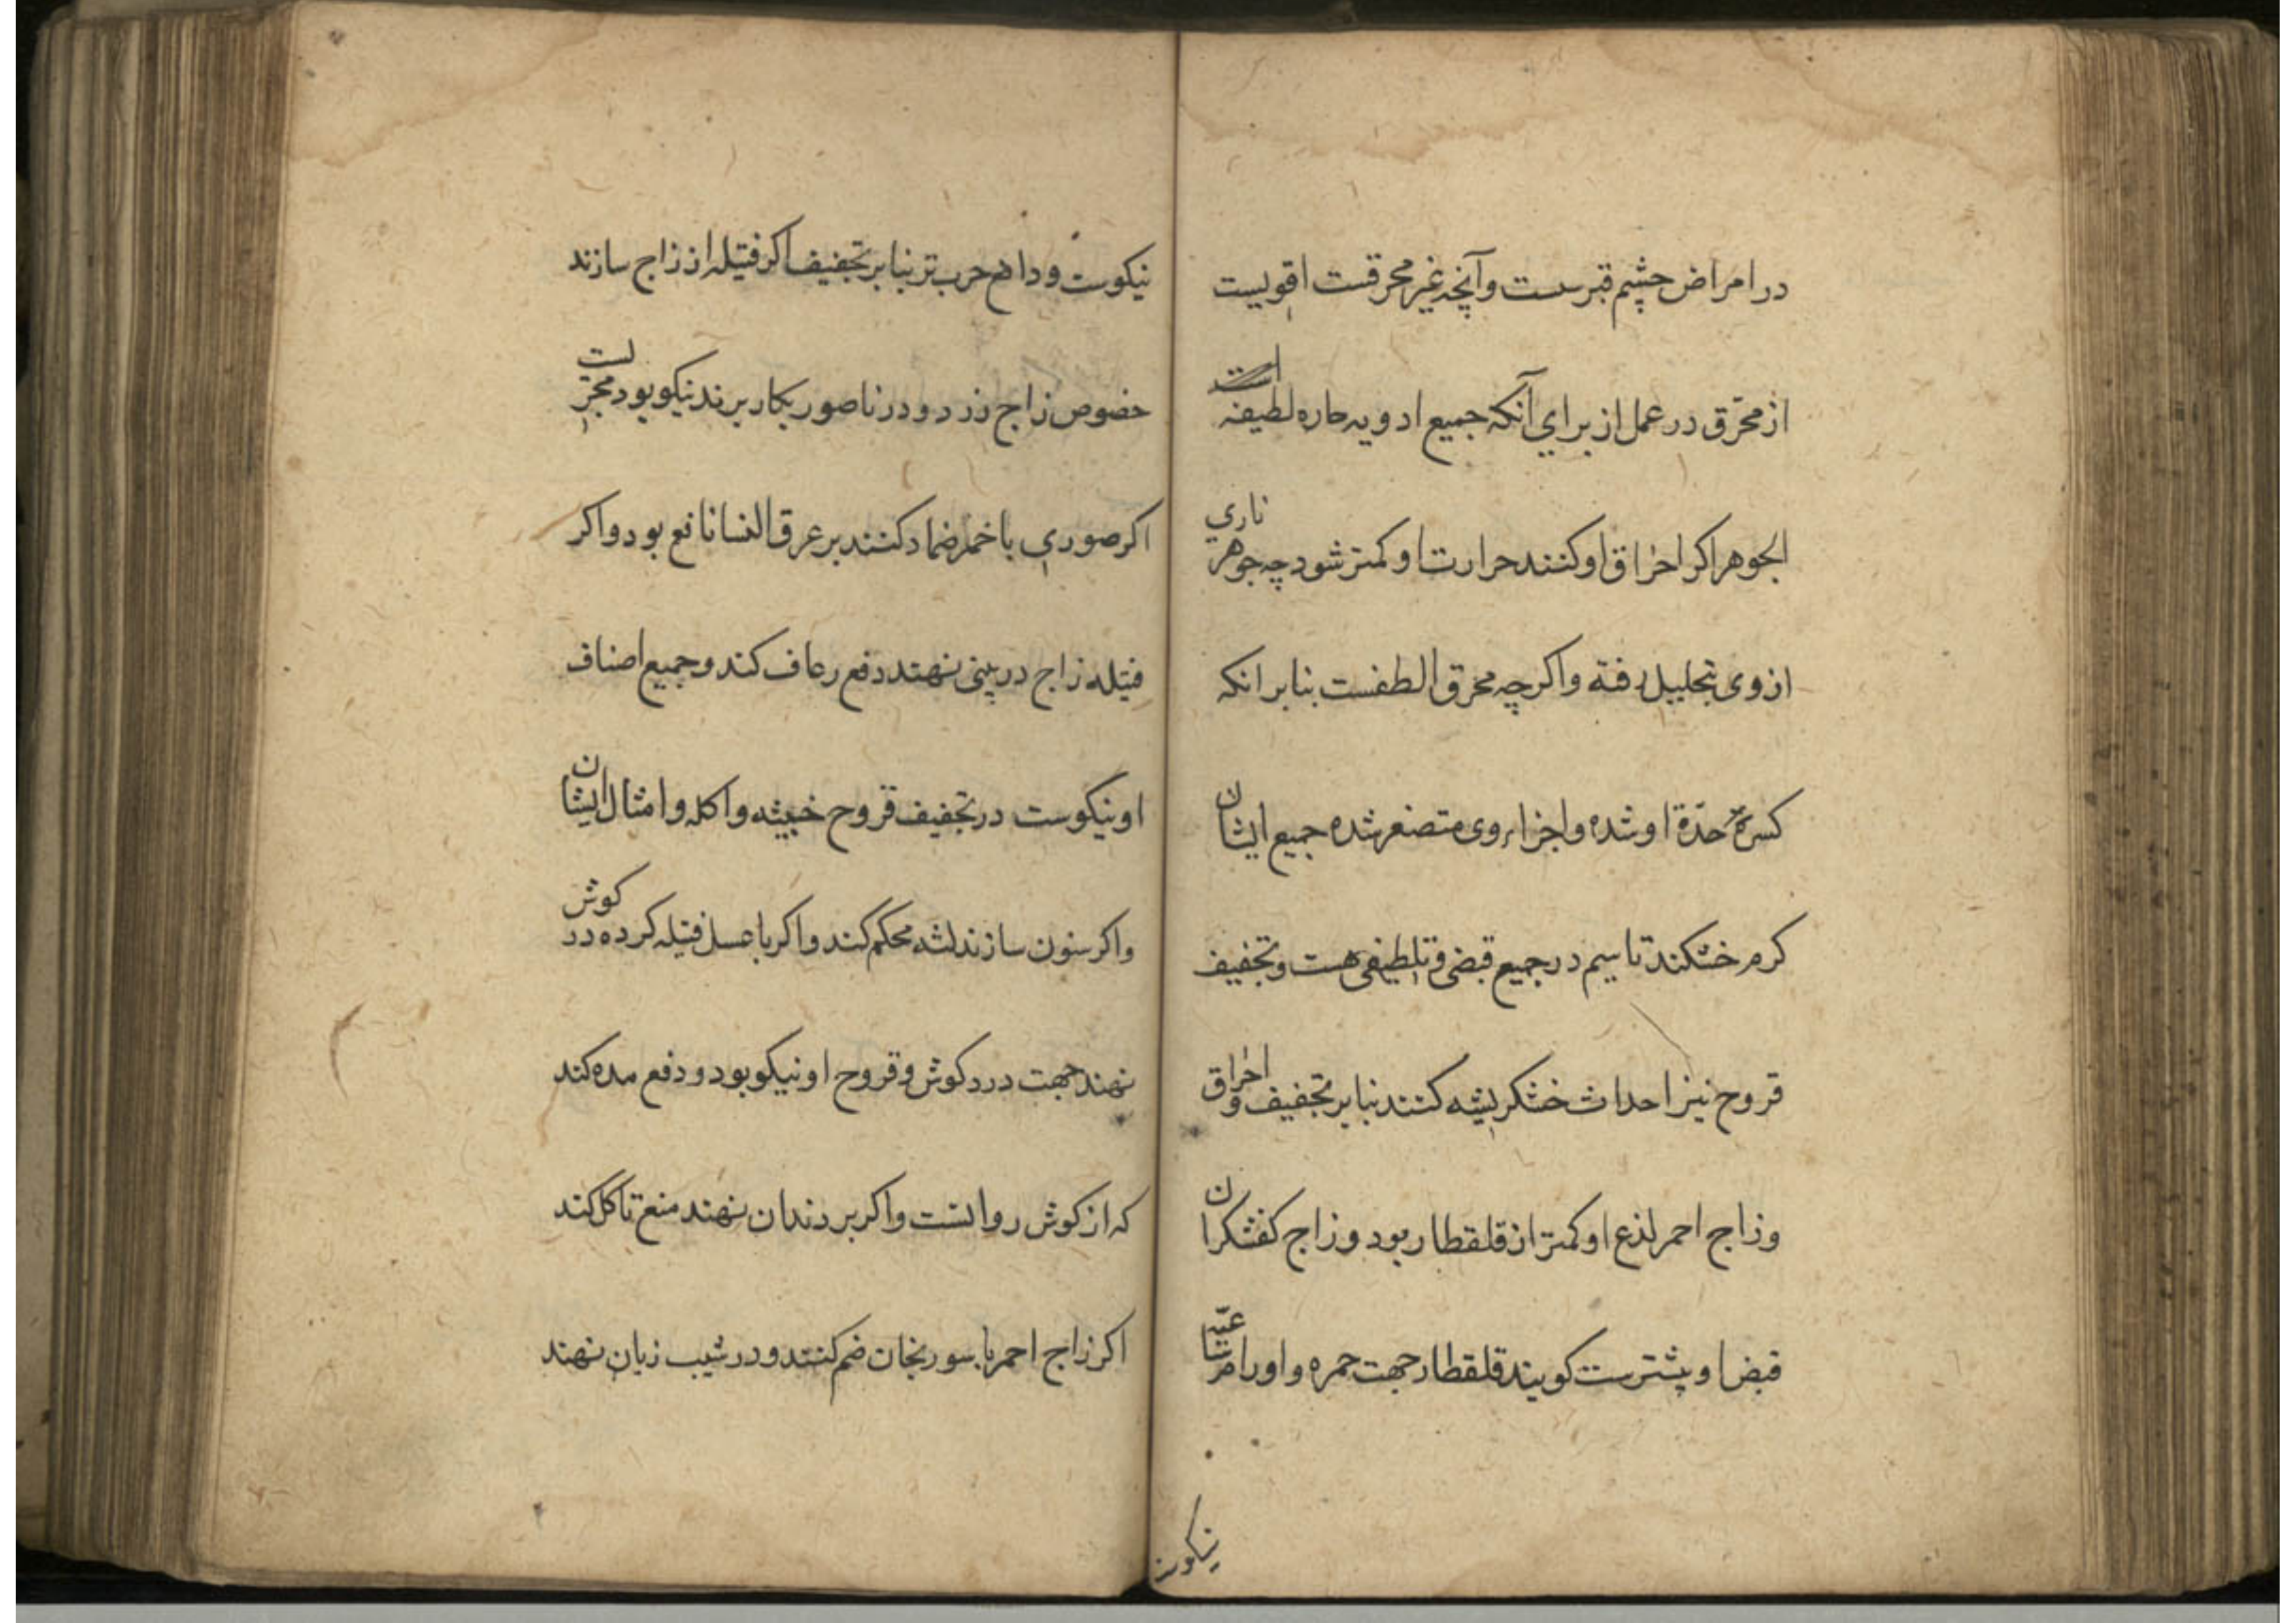 در امراض چشم قبرسست وآنچه غیر محرقست اقویست
از محرّق در عمل از برای آنکه جمیع ادویه حاره لطیفة است
الجوهر اکر احراق او کنند حرارت او کمتر شود چه جوهر ناری
از وی بتحلیل رفته واکرچه محرق الطفست بنابر انکه
کسر حدّة او شده واجزاء وی متصغر شده جمیع ایشان
کرم خشکند تا سیم در جمیع قبضی وتلطیفی هست وتجفیف
قروح نیز احداث خشکریشه کنند بنابر تجفیف واحراق
وزاج احمر لذع او کمتر از قلقطار بود وزاج کفشکران
قبض او پیشترست کویند قلقطار جهت حمره واورام ساعیه
نیکوست
نیکوست ودافع جرب تر بنابر تجفیف اکر فتیله از زاج سازند
خصوص زاج زرد ودر ناصور بکار برند نیکو بود مجرّبست
اکر صوری با خمر ضماد کنند بر عرق النسا نافع بود واکر
فتیله زاج در بینی نهند دفع رعاف کند وجمیع اصناف
او نیکوست در تجفیف قروح خبیثه واکله وامثال ایشان
واکر سنون سازند لثه محکم کند واکر با عسل فتیله کرده در کوش
نهند جهت درد کوش وقروح او نیکو بود ودفع مده کند
که از کوش روانست واکر بر دندان نهند منع تاکل کند
اکر زاج احمر با سورنجان ضم کنند ودر شیب زبان نهند